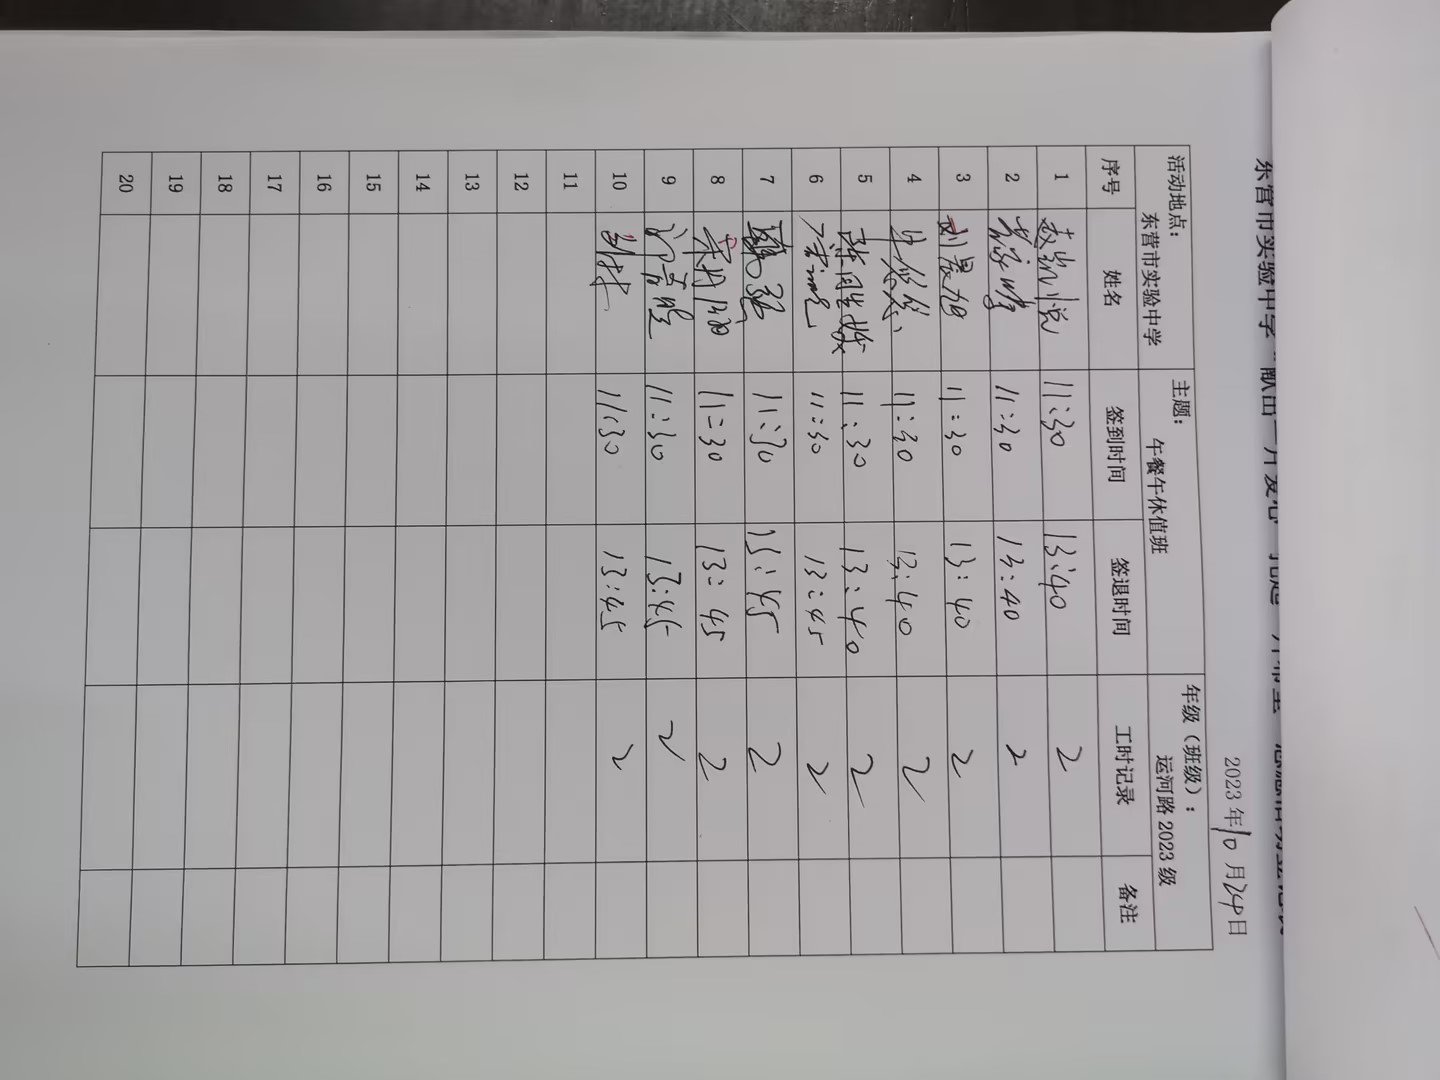 东营市实验中学“献出一片爱心 托起一片希望”志愿活动登记表
2023年10月24日
活动地点： 东营市实验中学 主题： 午餐午休值班 年级（班级）： 运河路2023级
序号 姓名 签到时间 签退时间 工时记录 备注
1 赵凯悦 11:30 13:40 2
2 11:30 13:40 2
3 刘晨旭 11:30 13:40 2
4 11:30 13:40 2
5 11:30 13:40 2
6 11:30 13:45 2
7 11:30 13:45 2
8 11:30 13:45 2
9 11:30 13:45 2
10 11:30 13:45 2
11
12
13
14
15
16
17
18
19
20